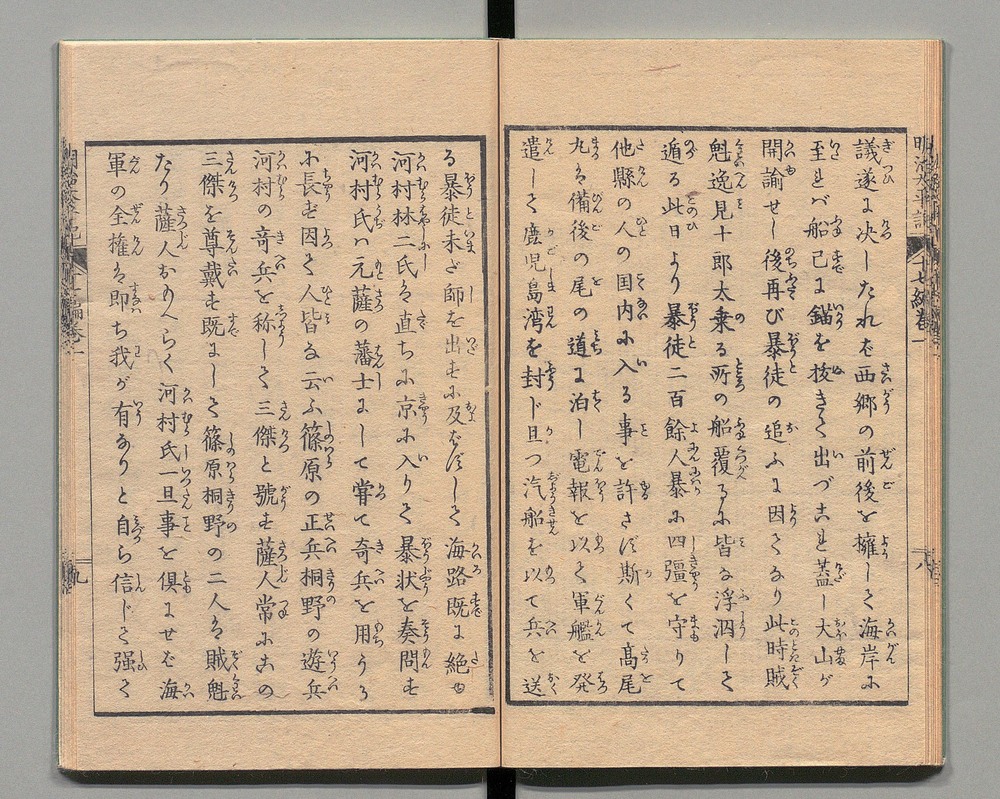 明治太平記 十七編巻一 八
議遂に决したれば西郷の前後を擁して海岸に
至れバ船已に錨を抜きて出づ是れ蓋し大山が
開諭せし後再び暴徒の追ふに因てなり此時賊
魁逸見十郎太乗る所の船覆るに皆な浮泅して
遁る此日より暴徒二百餘人暴に四彊を守りて
他縣の人の国内に入る事を許さず斯くて髙尾
丸は備後の尾の道に泊し電報を以て軍艦を発
遣して鹿児島湾を封じ且つ汽船を以て兵を送
る暴徒未だ師を出すに及ばずして海路既に絶ゆ
河村林二氏は直ちに京に入りて暴状を奏問す
河村氏ハ元と薩の藩士にして甞て奇兵を用うる
に長ず因て人皆な云ふ篠原の正兵桐野の遊兵
河村の奇兵を称して三傑と號す薩人常に此の
三傑を尊戴す既にして篠原桐野の二人は賊魁
たり薩人おもへらく河村氏一旦事を倶にせば海
軍の全権は即ち我が有なりと自ら信じて强く
九